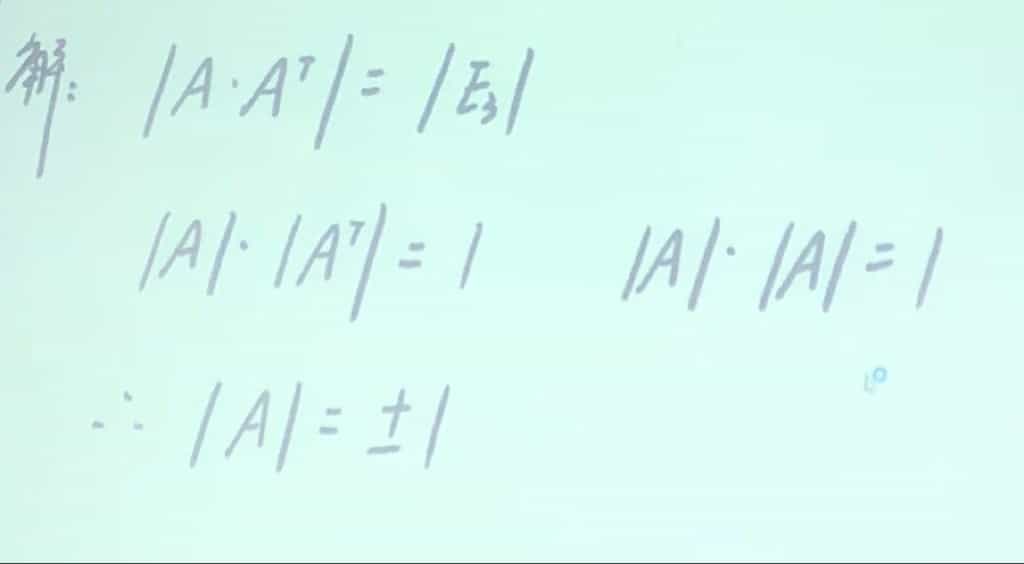 解: |A·Aᵀ| = |E₃|
|A|·|Aᵀ| = 1 |A|·|A| = 1
∴ |A| = ±1